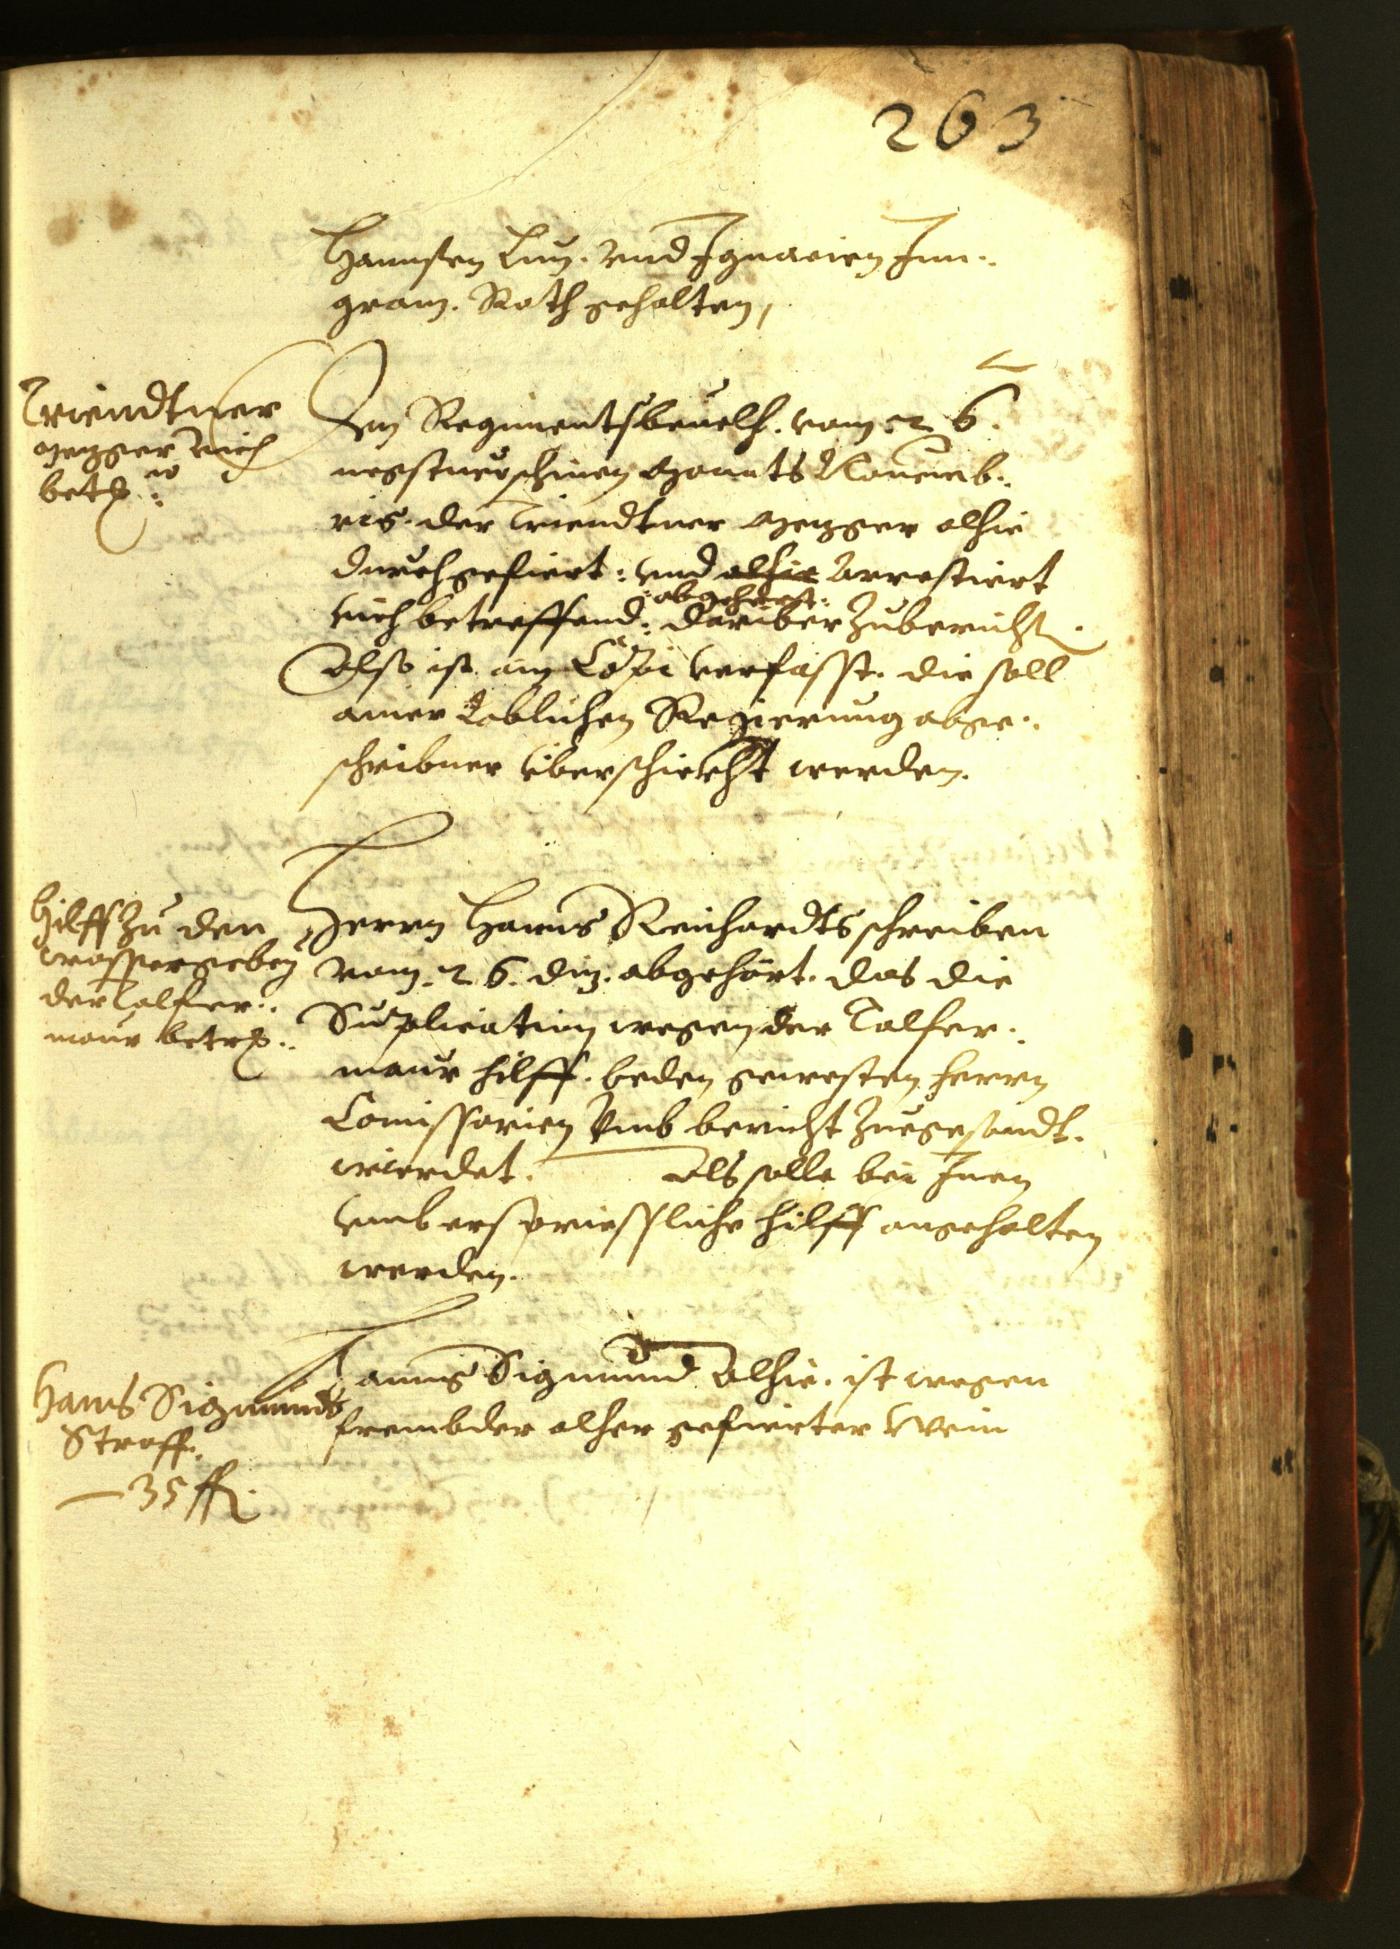 263
Hannsen Lun. vnd Ignacien Inn-
gram. Rath gehalten,
Triendtner
mezger vich
betr.
Ain Regimentsbeuelh. vom 26.
negstuerschinen Monats Nouemb-
ris. der Triendtner Mezger alhie
durchgefiert: vnd alhie Arrestiert
vich betreffend: :abgehört: dariber zuberichten.
Also ist ain Copi verfasst. die soll
ainer Loblichen Regierung abge-
schribner überschickht werden.
Hilff zu den
wassergeben
der Talfer-
maur betr.
Herrn Hanns Reinhardts schreiben
vom 26. diz. abgehört. das die
Suplication wegen der Talfer-
maur hilff. beden gewesten herrn
Comissarien vmb bericht zuegesandt.
wierdet. Als solle bei Inen
vmb erspriessliche hilff angehalten
werden.
Hanns Sigmunds
Straff.
— 35 fl.
Hanns Sigmund Alhie. ist wegen
frembder alher gefierter Wein